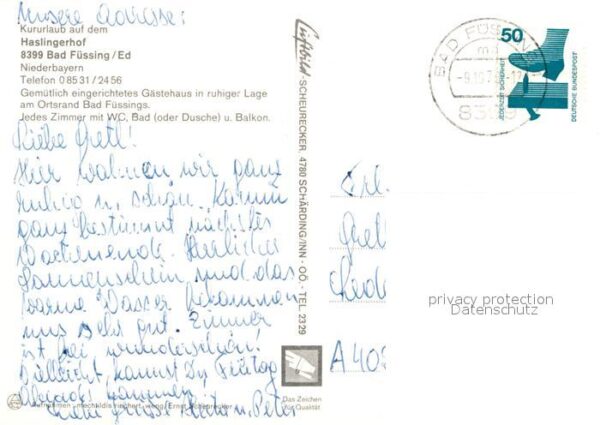 Unsere Adresse:
Kururlaub auf dem
Haslingerhof
8399 Bad Füssing/Ed
Niederbayern
Telefon 0 85 31 / 24 56
Gemütlich eingerichtetes Gästehaus in ruhiger Lage
am Ortsrand Bad Füssings.
Jedes Zimmer mit WC, Bad (oder Dusche) u. Balkon.
Liebe Gretl!
Hier wohnen wir ganz
ruhig u. schön. Komm
ganz bestimmt nächstes
Wochenende. Herrlicher
Sonnenschein und das
warme Wasser bekommen
uns sehr gut. Zimmer
ist frei wunderschön!
Vielleicht kannst Du Freitag
kommen
Liebe Grüsse u. Peter
Luftbild SCHEURECKER 4780 SCHÄRDING/INN - OÖ. - TEL. 23 29
Das Zeichen
für Qualität
BAD FÜSSING
-9.10.7
50
JEDERZEIT SICHERHEIT
DEUTSCHE BUNDESPOST
privacy protection
Datenschutz
A 40